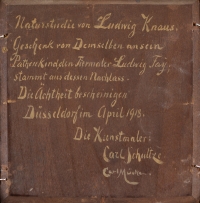 Naturstudie von Ludwig Knaus.
Geschenk von Demselben an sein
Patenkind, den Ludwig
stammt aus dessen Nachlass.
Die Achtheit bescheinigen
Düsseldorf im April 1918.
Die Kunstmaler:
Carl Schultze
Carl